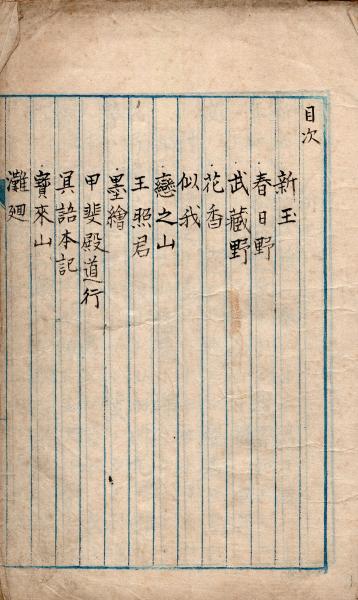 目次
新玉
春日野
武藏野
花香
似我
戀之山
王照君
墨繪
甲斐殿道行
具詻本記
寳來山
灘廻